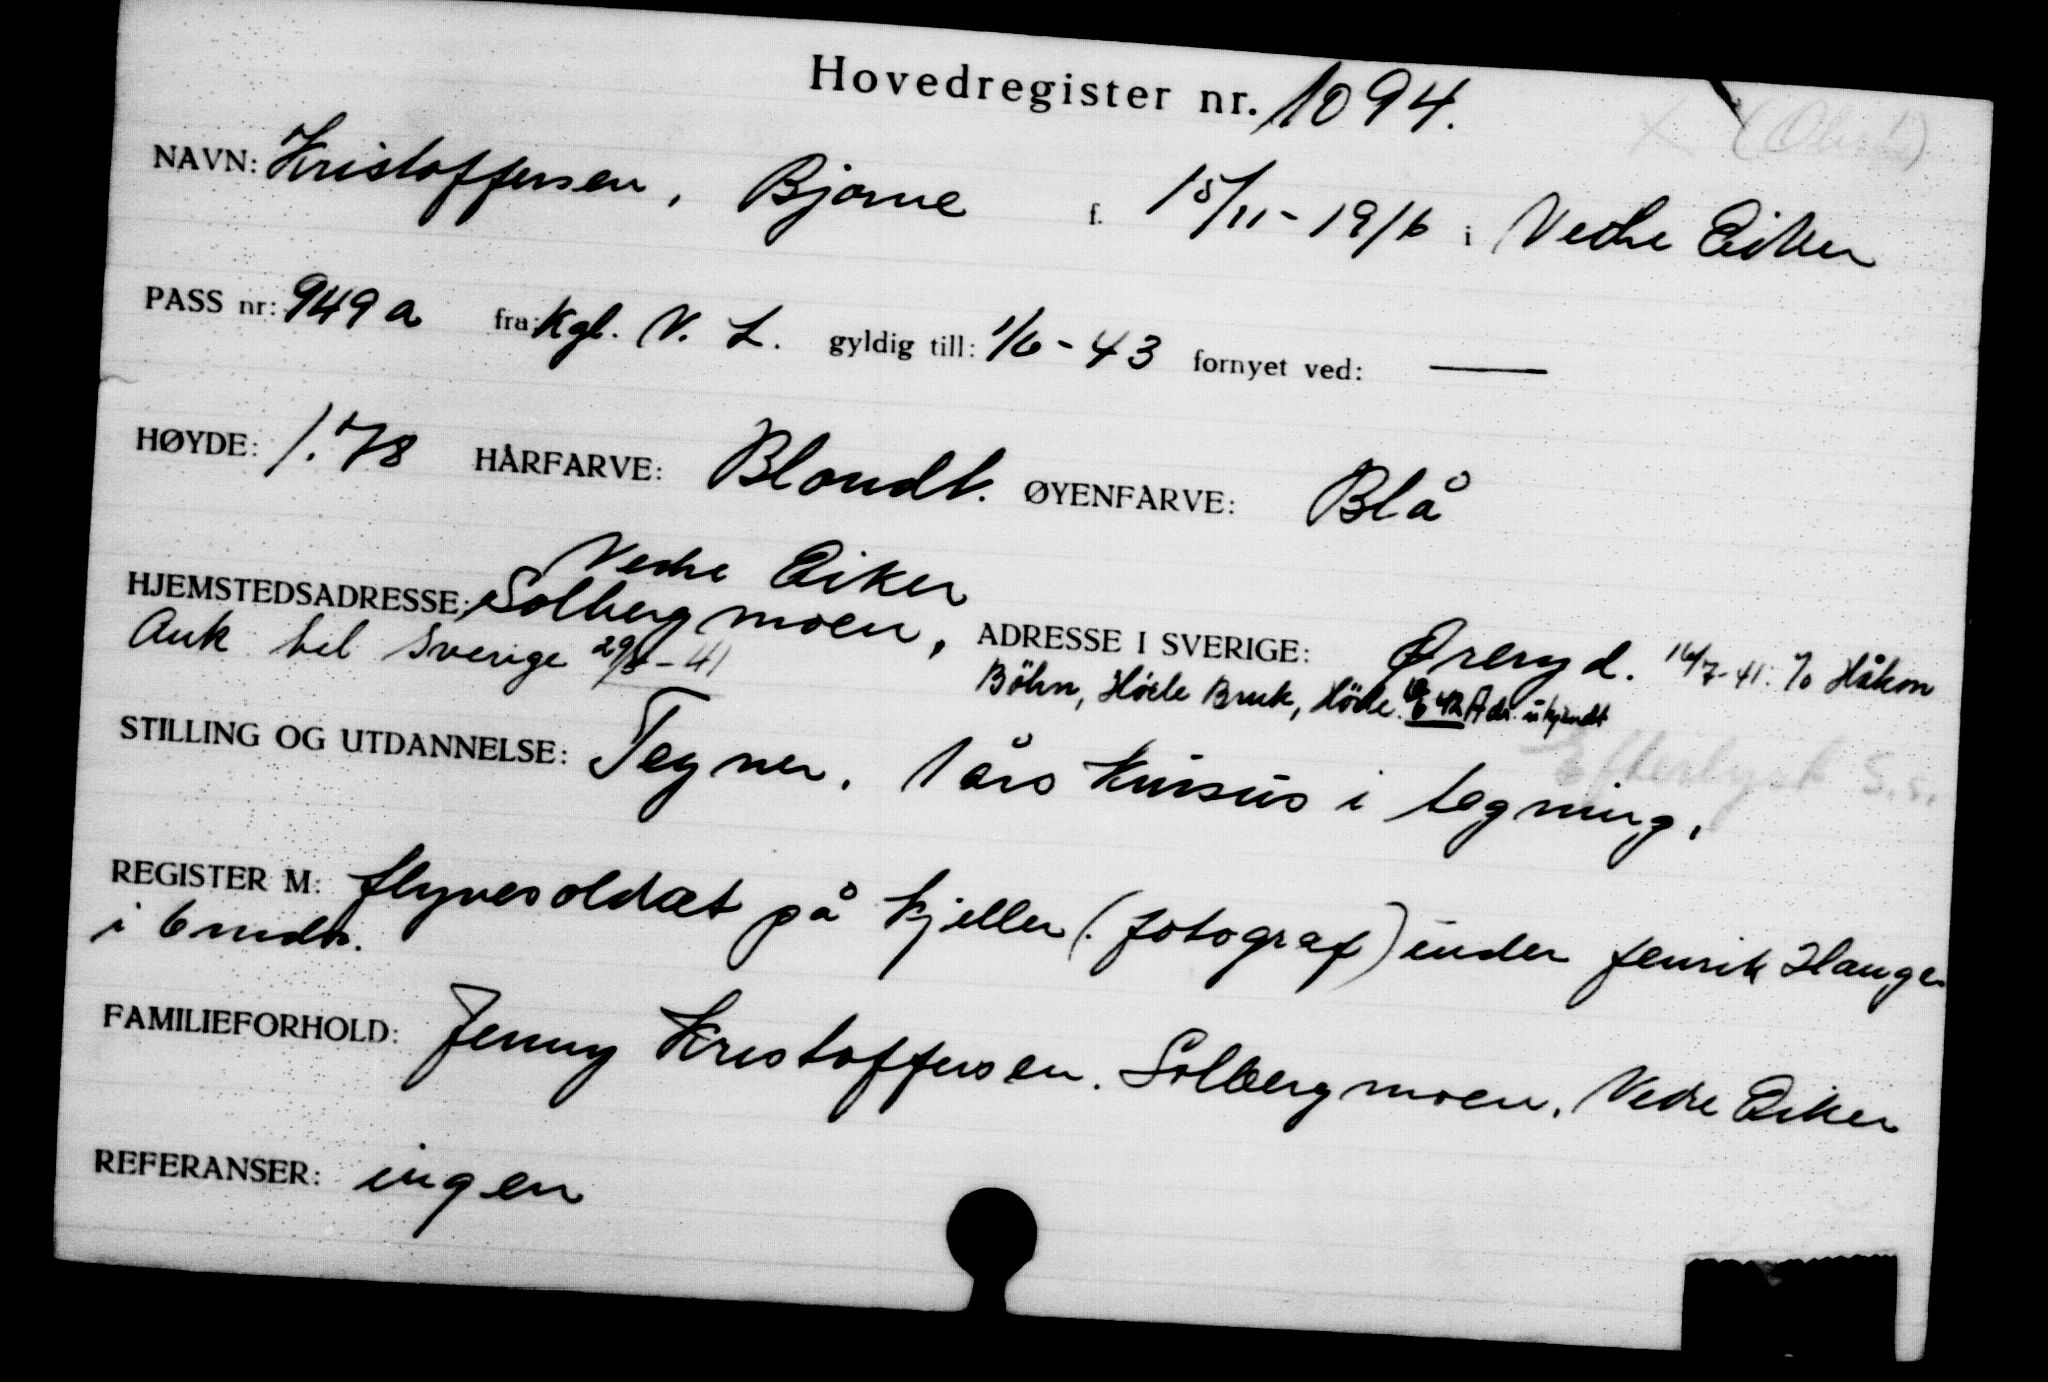 Hovedregister nr. 1094.
NAVN: Kristoffersen, Bjarne f. 15/11-1916 i Nedre Eiker
PASS nr: 949 a fra: Kgl. N. L. gyldig till: 1/6-43 fornyet ved: —
HØYDE: 1.78 HÅRFARVE: Blondt. ØYENFARVE: Blå
Nedre Eiker
HJEMSTEDSADRESSE: Solbergmoen, ADRESSE I SVERIGE: Øreryd. 16/7-41: c/o Håkon
Ank til Sverige 29/5-41 Böhn, Höcle Bruk, Höcle. 42 Adr. ukjendt
STILLING OG UTDANNELSE: Tegner. 1 års kursus i tegning.
Efterlyst S.s.
REGISTER M: flyvesoldat på Kjeller (fotograf) under fenrik Hauge
i 6 mdr.
FAMILIEFORHOLD: Jenny Kristoffersen. Solbergmoen. Nedre Eiker
REFERANSER: ingen